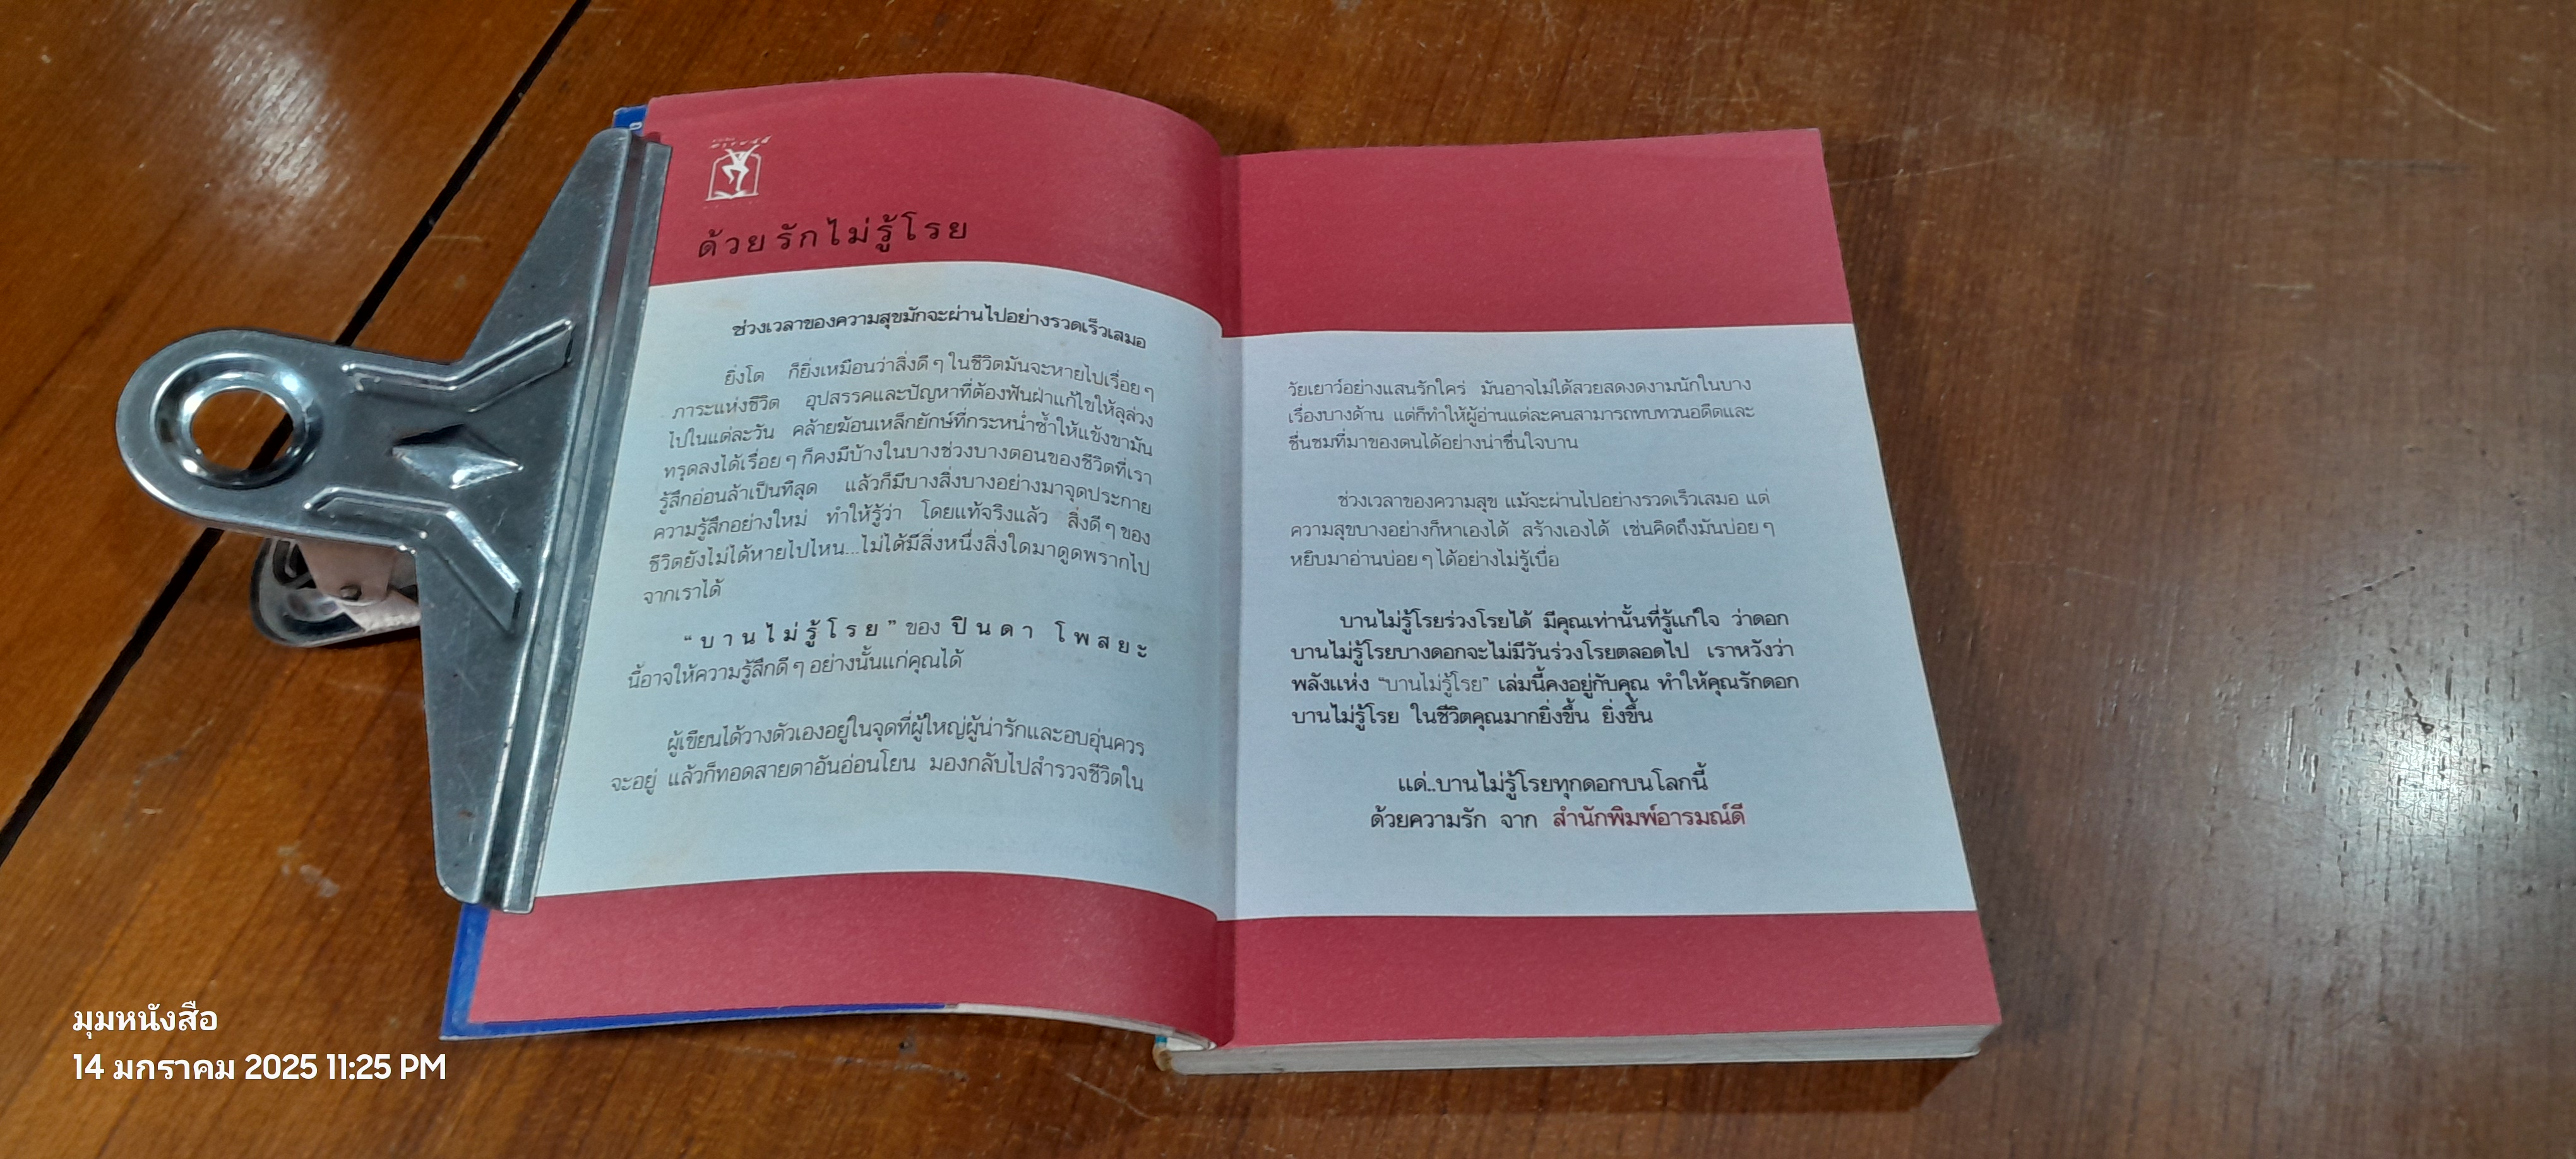 ด้วยรักไม่รู้โรย
ช่วงเวลาของความสุขมักจะผ่านไปอย่างรวดเร็วเสมอ
ยิ่งโต ก็ยิ่งเหมือนว่าสิ่งดีๆ ในชีวิตมันจะหายไปเรื่อยๆ
ภาระแห่งชีวิต อุปสรรคและปัญหาที่ต้องฟันฝ่าแก้ไขให้ลุล่วง
ไปในแต่ละวัน คล้ายฆ้อนเหล็กยักษ์ที่กระหน่ำซ้ำให้แข้งขามัน
ทรุดลงได้เรื่อยๆ ก็คงมีบ้างในบางช่วงบางตอนของชีวิตที่เรา
รู้สึกอ่อนล้าเป็นที่สุด แล้วก็มีบางสิ่งบางอย่างมาจุดประกาย
ความรู้สึกอย่างใหม่ ทำให้รู้ว่า โดยแท้จริงแล้ว สิ่งดีๆ ของ
ชีวิตยังไม่ได้หายไปไหน...ไม่ได้มีสิ่งหนึ่งสิ่งใดมาดูดพรากไป
จากเราได้
“บานไม่รู้โรย” ของ ปินดา โพสยะ
นี้อาจให้ความรู้สึกดีๆ อย่างนั้นแก่คุณได้
ผู้เขียนได้วางตัวเองอยู่ในจุดที่ผู้ใหญ่ผู้น่ารักและอบอุ่นควร
จะอยู่ แล้วก็ทอดสายตาอันอ่อนโยน มองกลับไปสำรวจชีวิตใน
วัยเยาว์อย่างแสนรักใคร่ มันอาจไม่ได้สวยสดงดงามนักในบาง
เรื่องบางด้าน แต่ก็ทำให้ผู้อ่านแต่ละคนสามารถทบทวนอดีตและ
ชื่นชมที่มาของตนได้อย่างน่าชื่นใจบาน
ช่วงเวลาของความสุข แม้จะผ่านไปอย่างรวดเร็วเสมอ แต่
ความสุขบางอย่างก็หาเองได้ สร้างเองได้ เช่นคิดถึงมันบ่อยๆ
หยิบมาอ่านบ่อยๆ ได้อย่างไม่รู้เบื่อ
บานไม่รู้โรยร่วงโรยได้ มีคุณเท่านั้นที่รู้แก่ใจ ว่าดอก
บานไม่รู้โรยบางดอกจะไม่มีวันร่วงโรยตลอดไป เราหวังว่า
พลังแห่ง “บานไม่รู้โรย” เล่มนี้คงอยู่กับคุณ ทำให้คุณรักดอก
บานไม่รู้โรย ในชีวิตคุณมากยิ่งขึ้น ยิ่งขึ้น
แด่..บานไม่รู้โรยทุกดอกบนโลกนี้
ด้วยความรัก จาก สำนักพิมพ์อารมณ์ดี
มุมหนังสือ
14 มกราคม 2025 11:25 PM